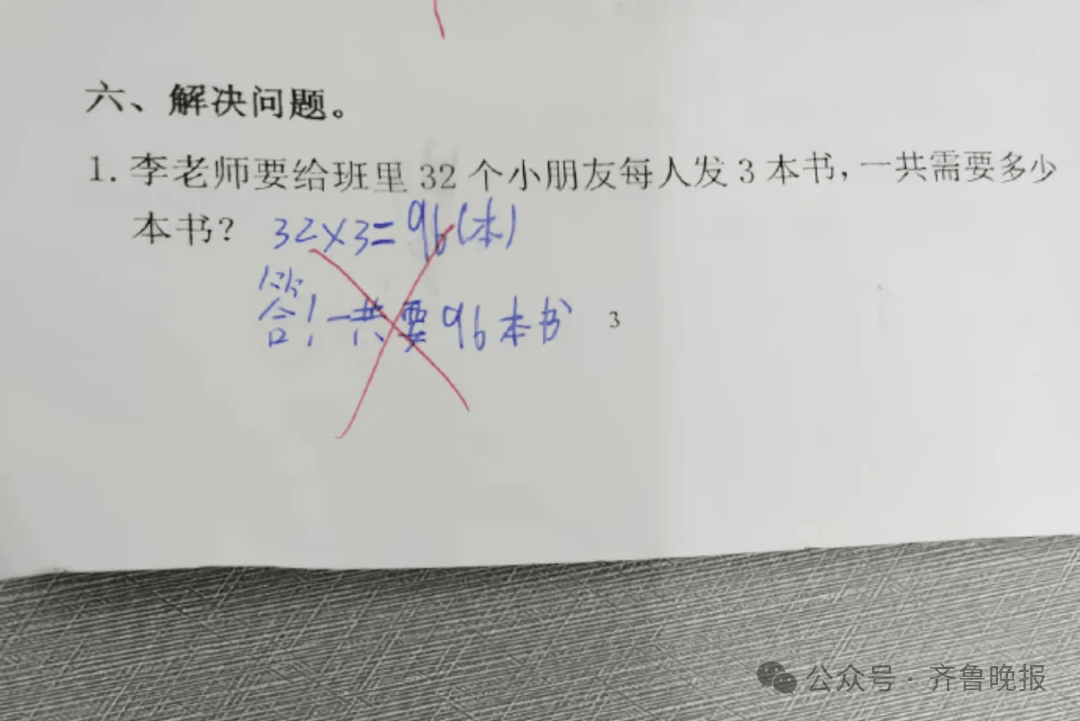 六、解决问题。
1. 李老师要给班里 32 个小朋友每人发 3 本书，一共需要多少
本书？ 32×3=96(本)
答！一共要96本书
3
公众号 · 齐鲁晚报